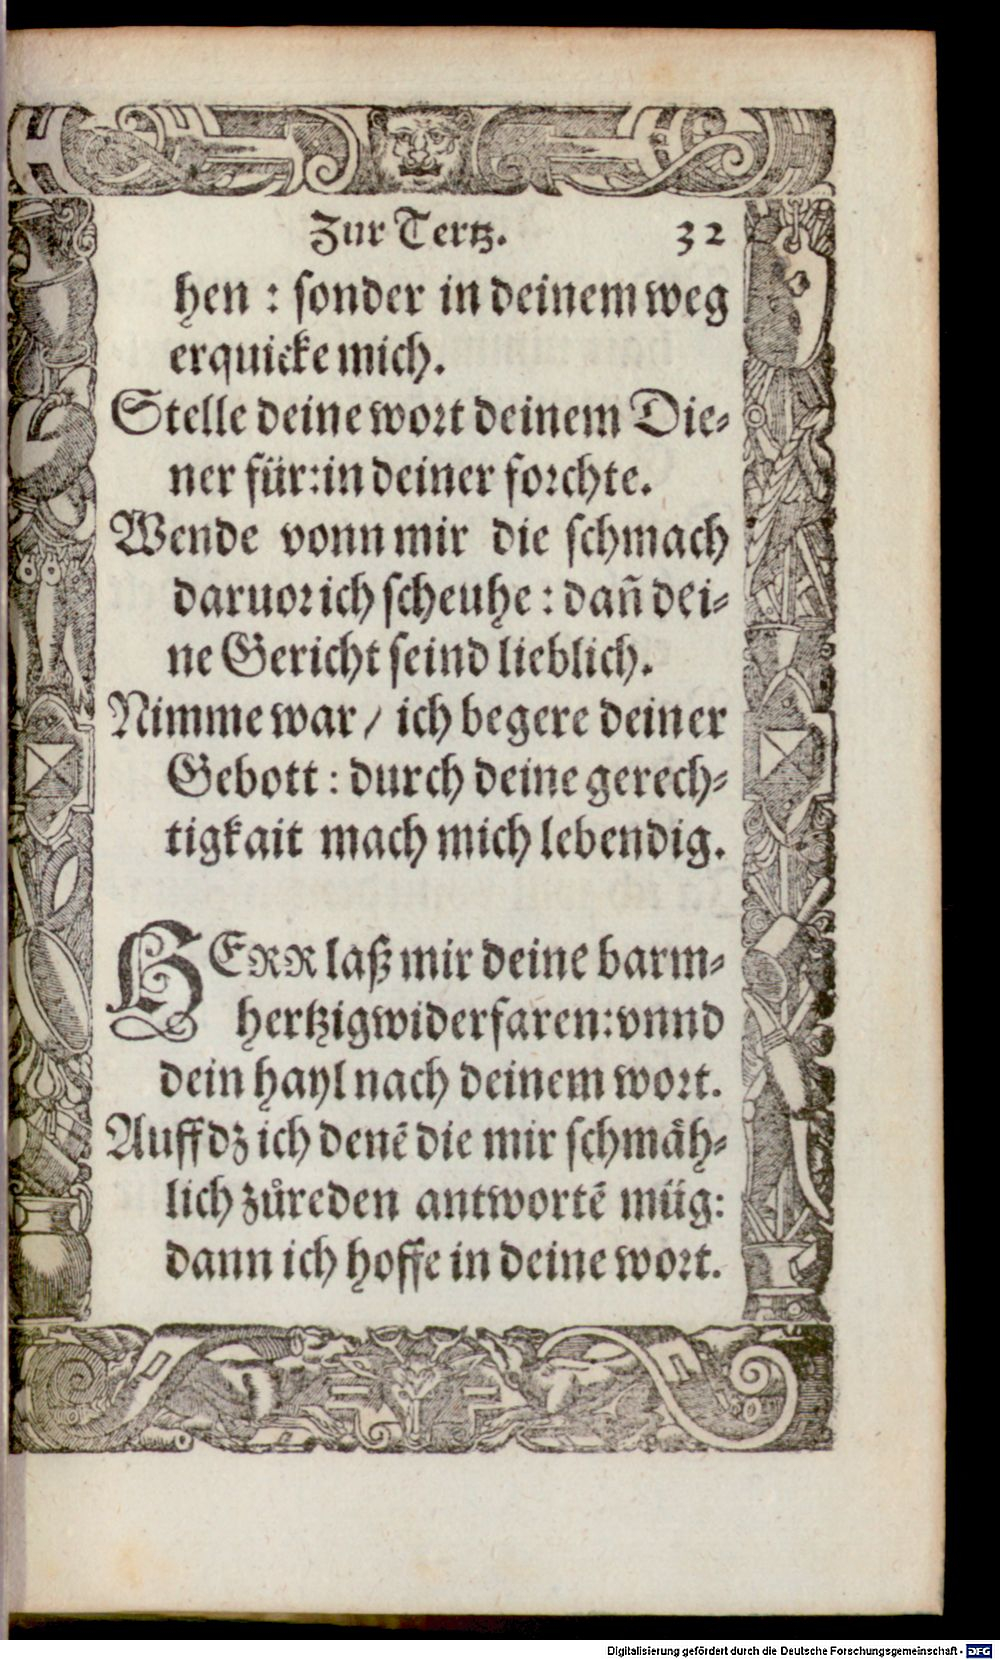 Zur Tertz. 32
hen : sonder in deinem weg
erquicke mich.
Stelle deine wort deinem Die-
ner für:in deiner forchte.
Wende vonn mir die schmach
daruor ich scheuhe : dañ dei-
ne Gericht seind lieblich.
Nimme war / ich begere deiner
Gebott : durch deine gerech-
tigkait mach mich lebendig.
HERR laß mir deine barm-
hertzig widerfaren: vnnd
dein hayl nach deinem wort.
Auff dz ich denẽ die mir schmäh-
lich zůreden antwortẽ müg:
dann ich hoffe in deine wort.
Digitalisierung gefördert durch die Deutsche Forschungsgemeinschaft - DFG